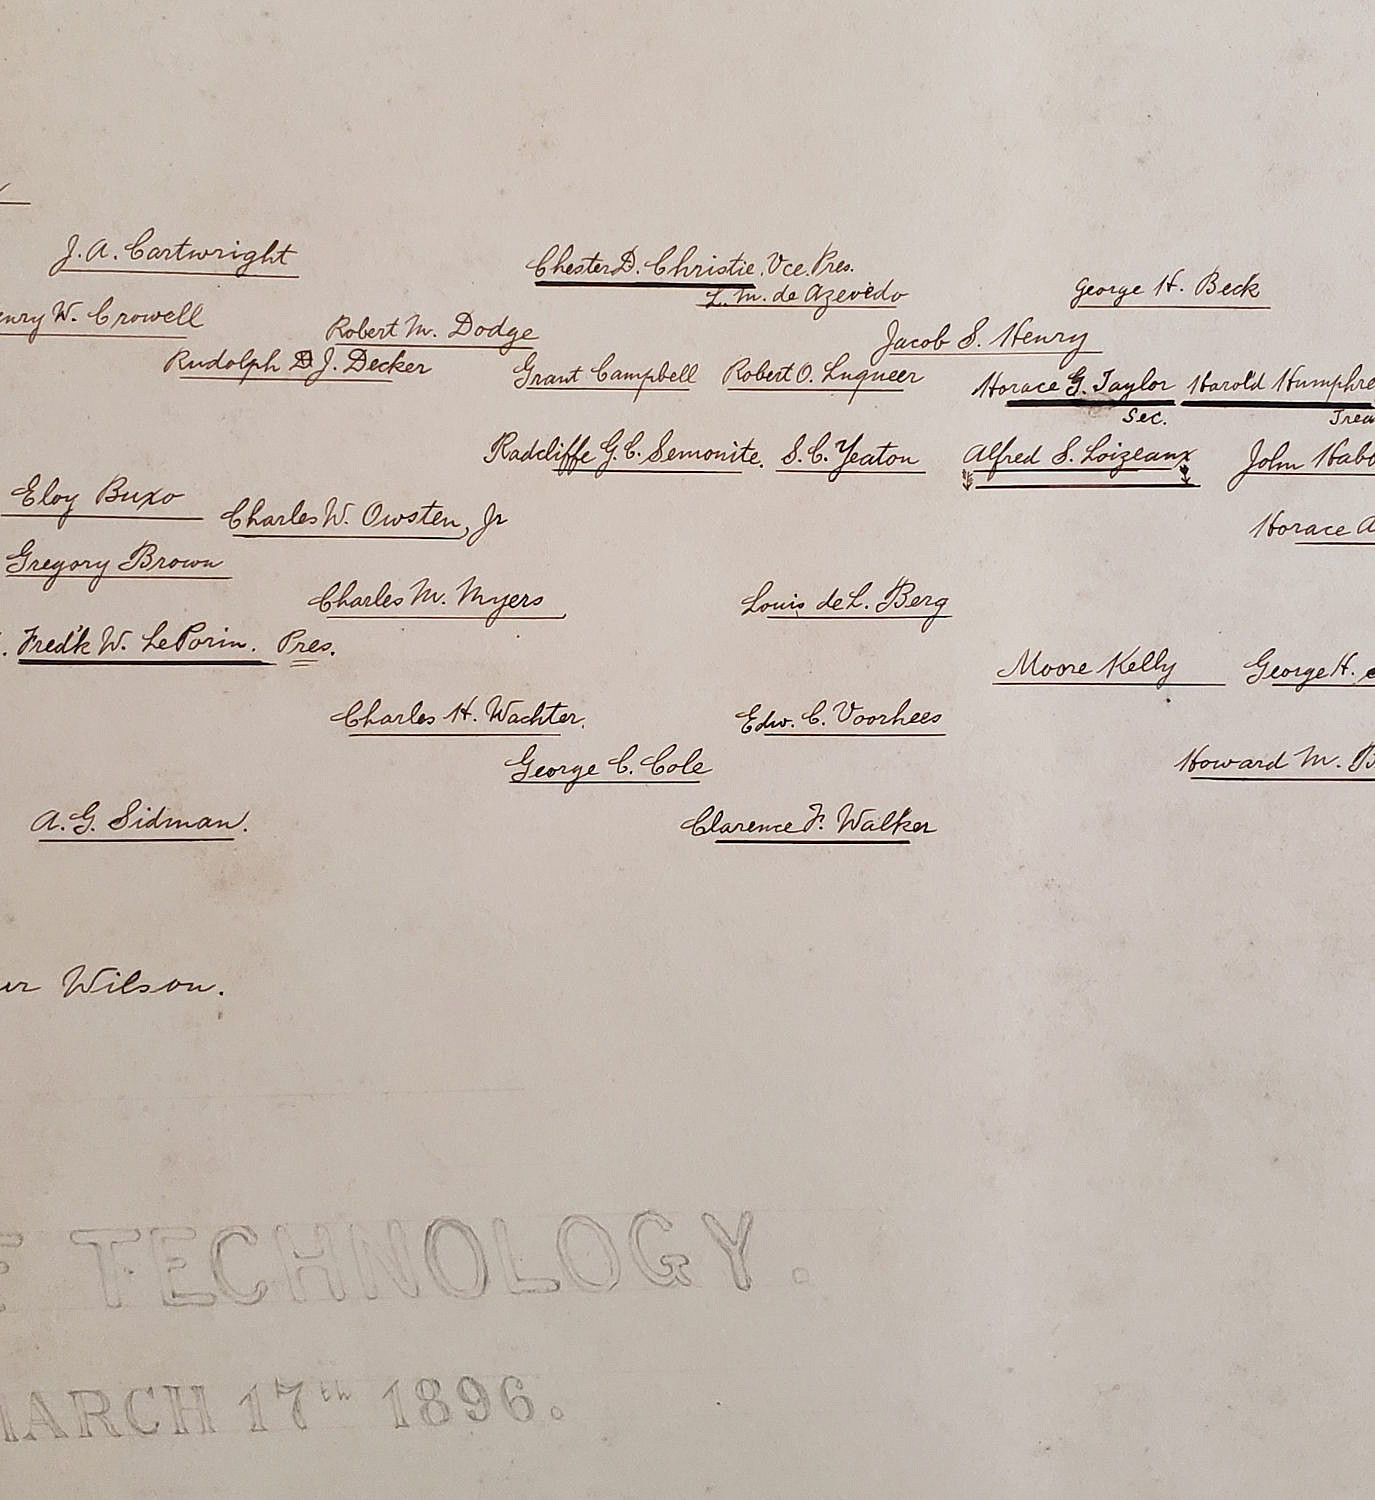 J. A. Cartwright
Chester D. Christie, Vce. Pres.
L. M. de Azevedo
George H. Beck
enry W. Crowell
Robert M. Dodge
Jacob S. Henry
Rudolph D. J. Decker
Grant Campbell
Robert O. Luqueer
Horace G. Taylor
Sec.
Harold Humphre
Trea
Radcliffe G. C. Semonite.
S. C. Yeaton
Alfred S. Loizeaux
John
Eloy Buxo
Charles W. Owsten, Jr
Horace A
Gregory Brown
Charles M. Myers
Louis de L. Berg
Fred'k W. LePorin. Pres.
Moore Kelly
George H.
Charles H. Wachter.
Edw. C. Voorhees
George C. Cole
Howard M. B
A. G. Sidman.
Clarence F. Walker
ur Wilson.
F TECHNOLOGY.
MARCH 17th 1896.